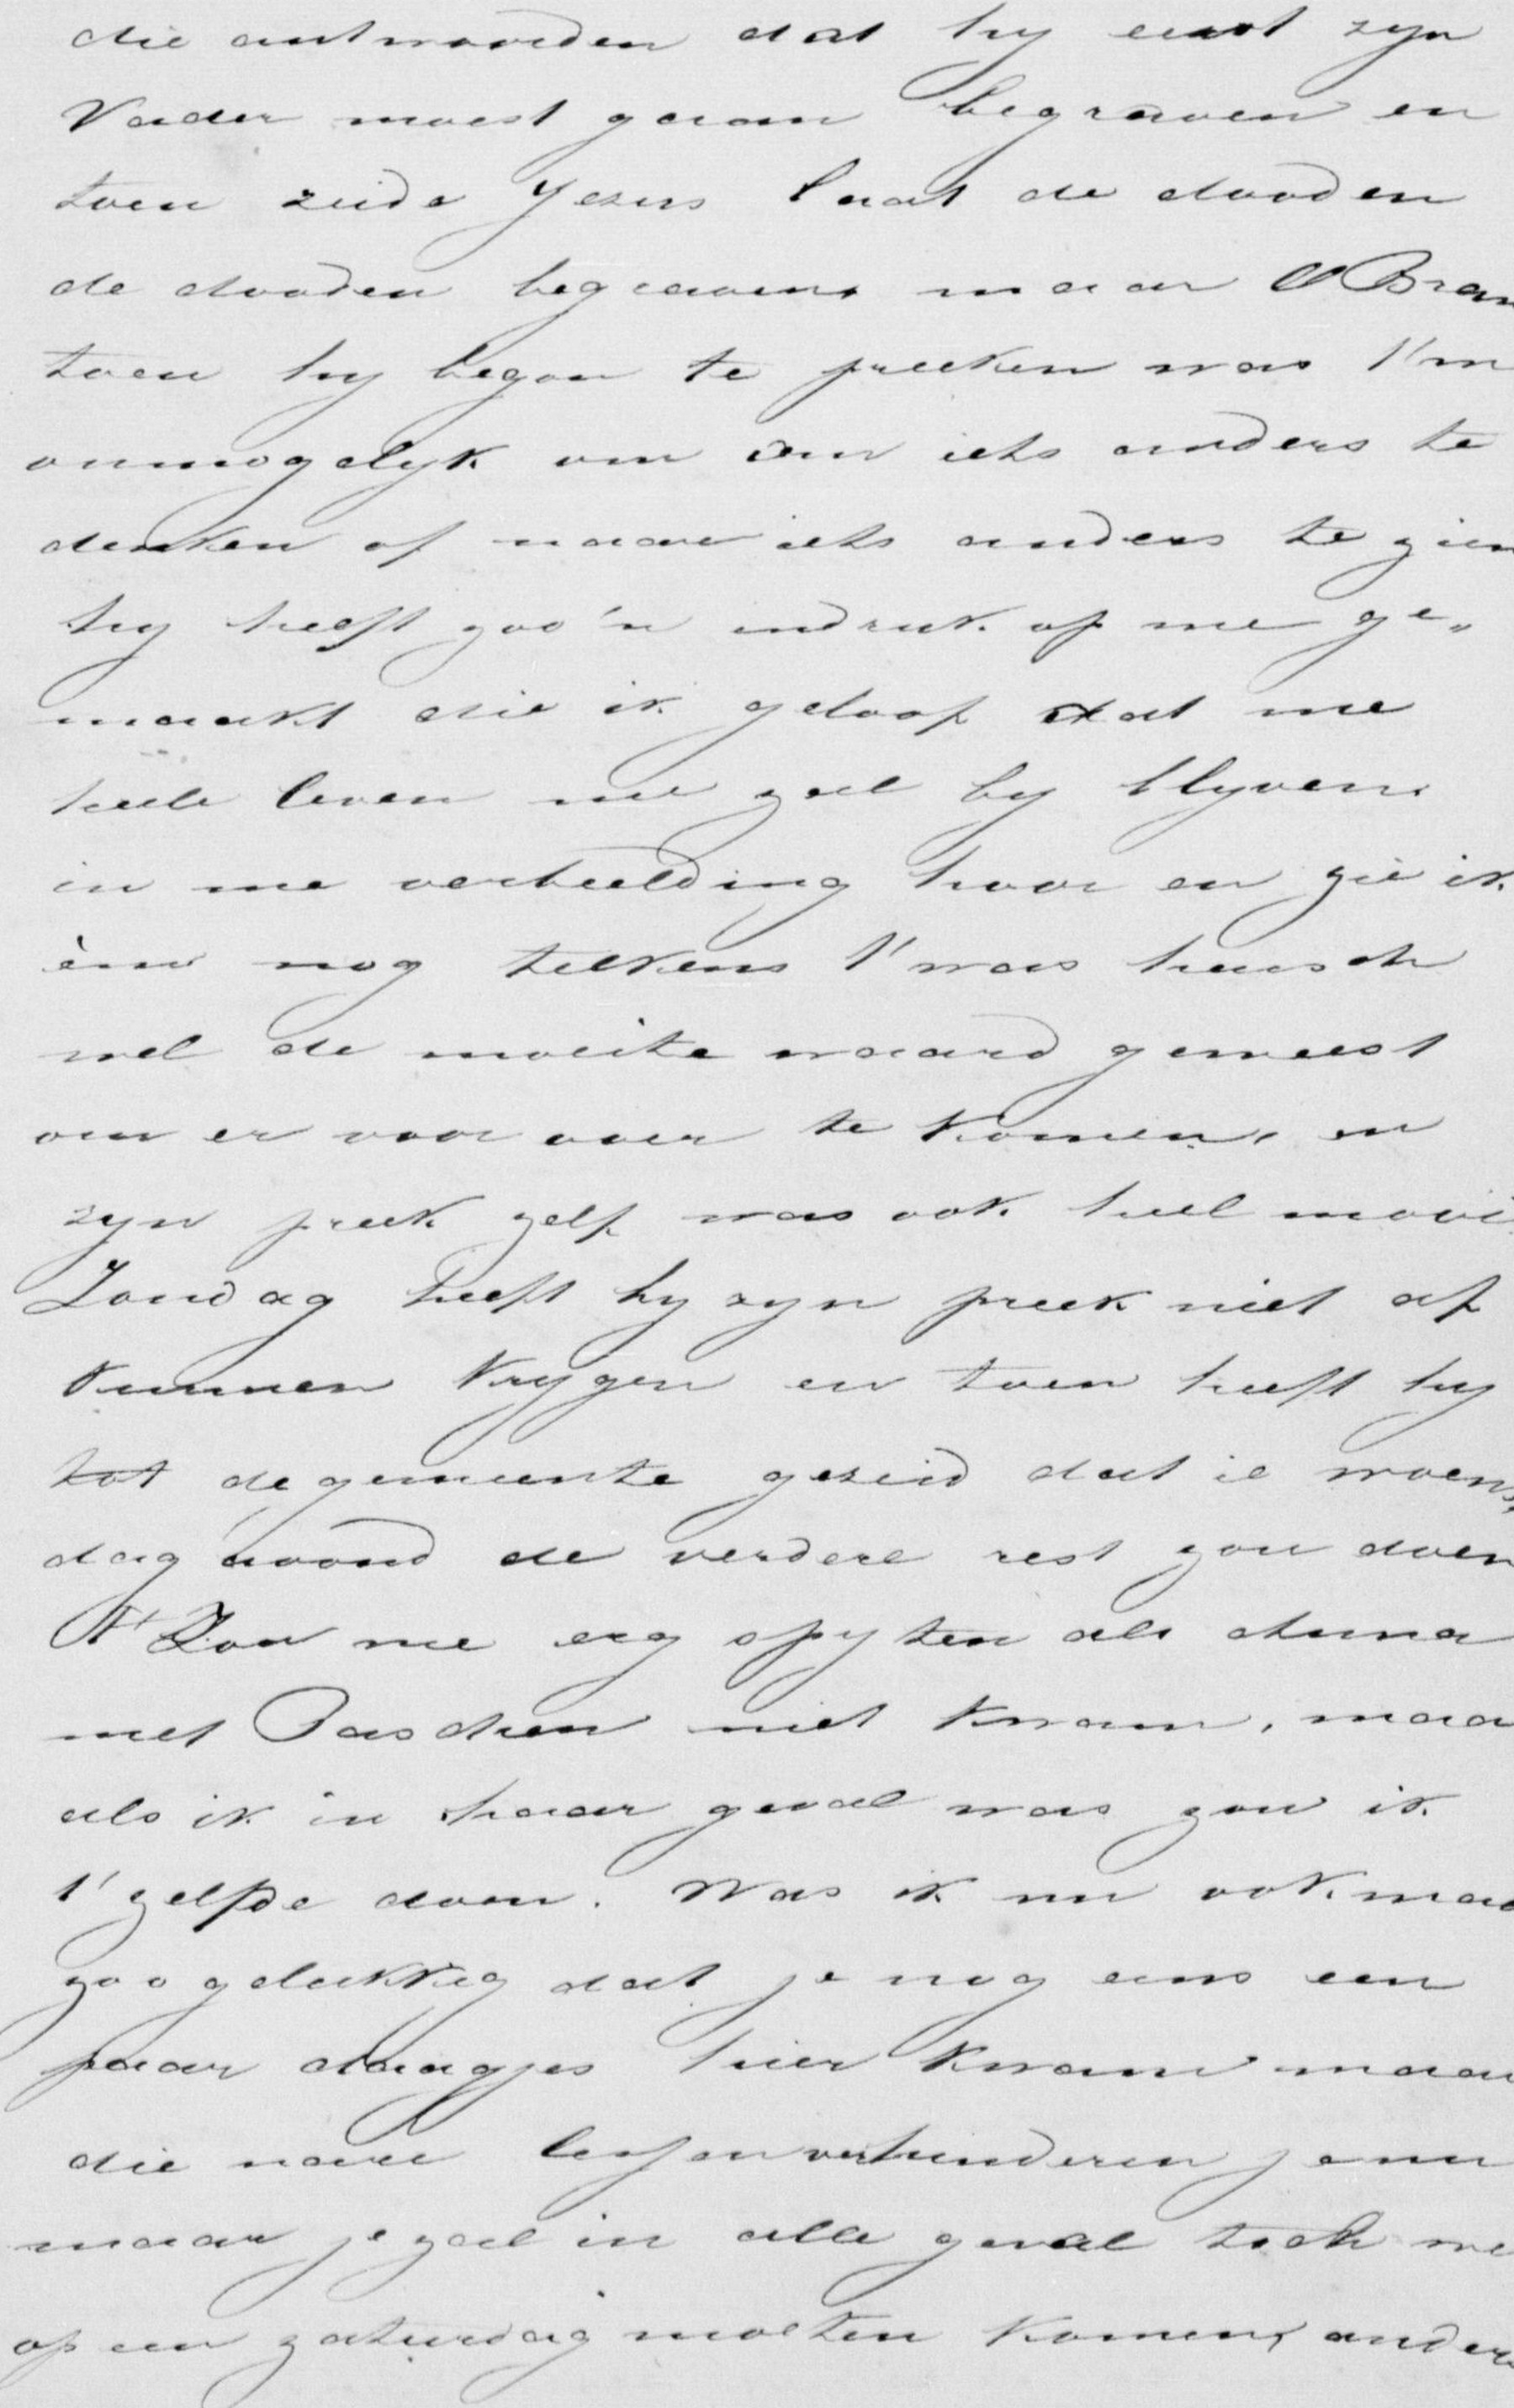 die antwoorden dat hy eerst zyn
Vader moest gaan begraven en
toen zeide Jezus laat de dooden
de dooden begraven, maar O Bram
toen hy begon te preeken was t'm
onmogelyk om aan iets anders te
denken of naar iets anders te zien
hy heeft zoo'n indruk op me ge„
maakt die ik geloof dat me
heele leven me zal by blyven.
in me verbeelding hoor en zie ik
èm nog telkens t'was heusch
wel de moeite waard geweest
om er voor over te komen, en
zyn preek zelf was ook heel mooi
Zondag heeft hy zyn preek niet af
kunnen krygen en toen heeft hy
tot de gemeente gezeid dat ie woens„
dag avond de verdere rest zou doen
T' Zou me erg spyten als Anna
met Paschen niet kwam, maar
als ik in haar geval was zou ik
t' zelfde doen. Was ik nu ook maar
zoo gelukkig dat je nog eens een
paar daagjes hier kwam maar
die nare lessen verhinderen je nu
maar je zal in alle geval toch we
op een zaturdag moeten komen, anders